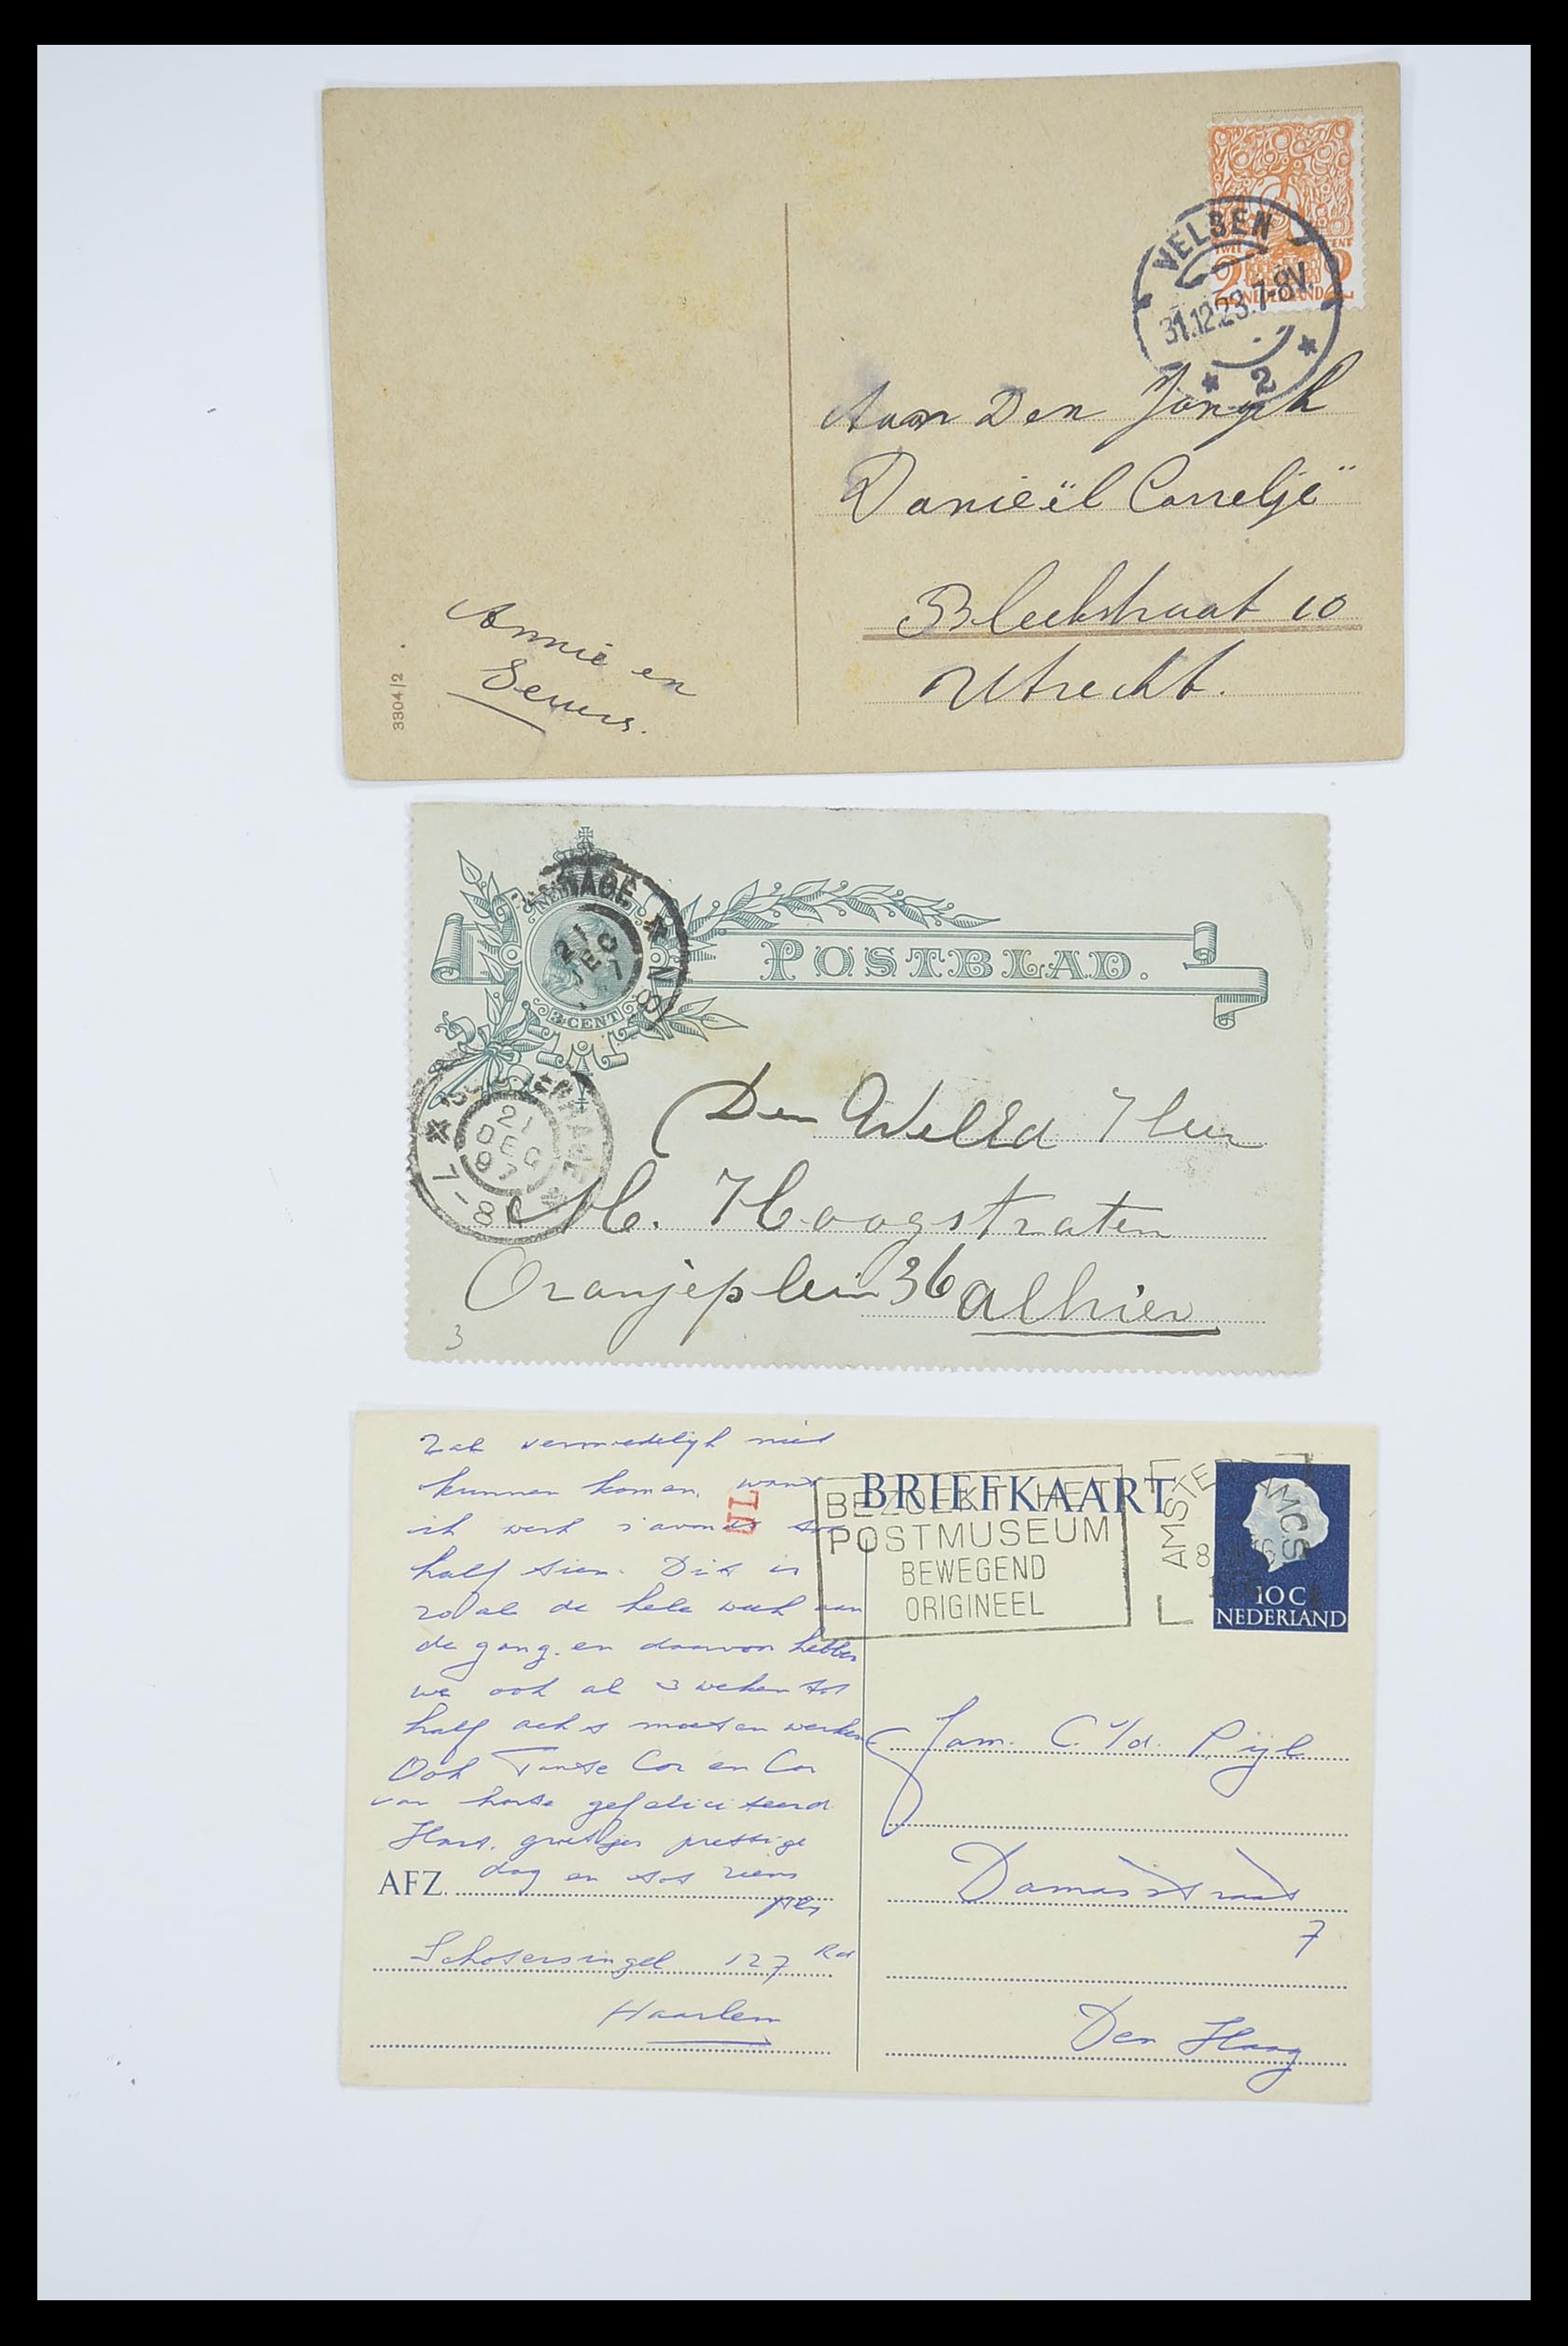 TWEE CENT
2 2
NEDERLAND
VELSEN
31.12.23.7-8V.
* 2 *
Aan Den Jongeh
Danieël Correljé
Bleekstraat 10
Utrecht.
Annie en
3304/2
POSTBLAD.
3 CENT
21
DEC
21
DEC
97
7-8N
Den WelEd Heer
M. Hoogstraten
Oranjeplein 36 alhier
3
Zal vermoedelijk niet
kunnen komen, want
ik werk s'avonds tot
half tien. Dit is
zo al de hele week aan
de gang. en daarvoor hebben
we ook al 3 weken tot
half acht moeten werken
Ook Tante Cor en Cor
van harte gefeliciteerd.
Hart. groetjes prettige
dag en tot ziens
AFZ.
Schotersingel 127 Rd
Haarlem
BRIEFKAART
BEZOEKT HET
POSTMUSEUM
BEWEGEND
ORIGINEEL
AMSTERDAM CS
8
10 C
NEDERLAND
Fam. C. v/d. Pijl
Damasstraat
7
Den Haag